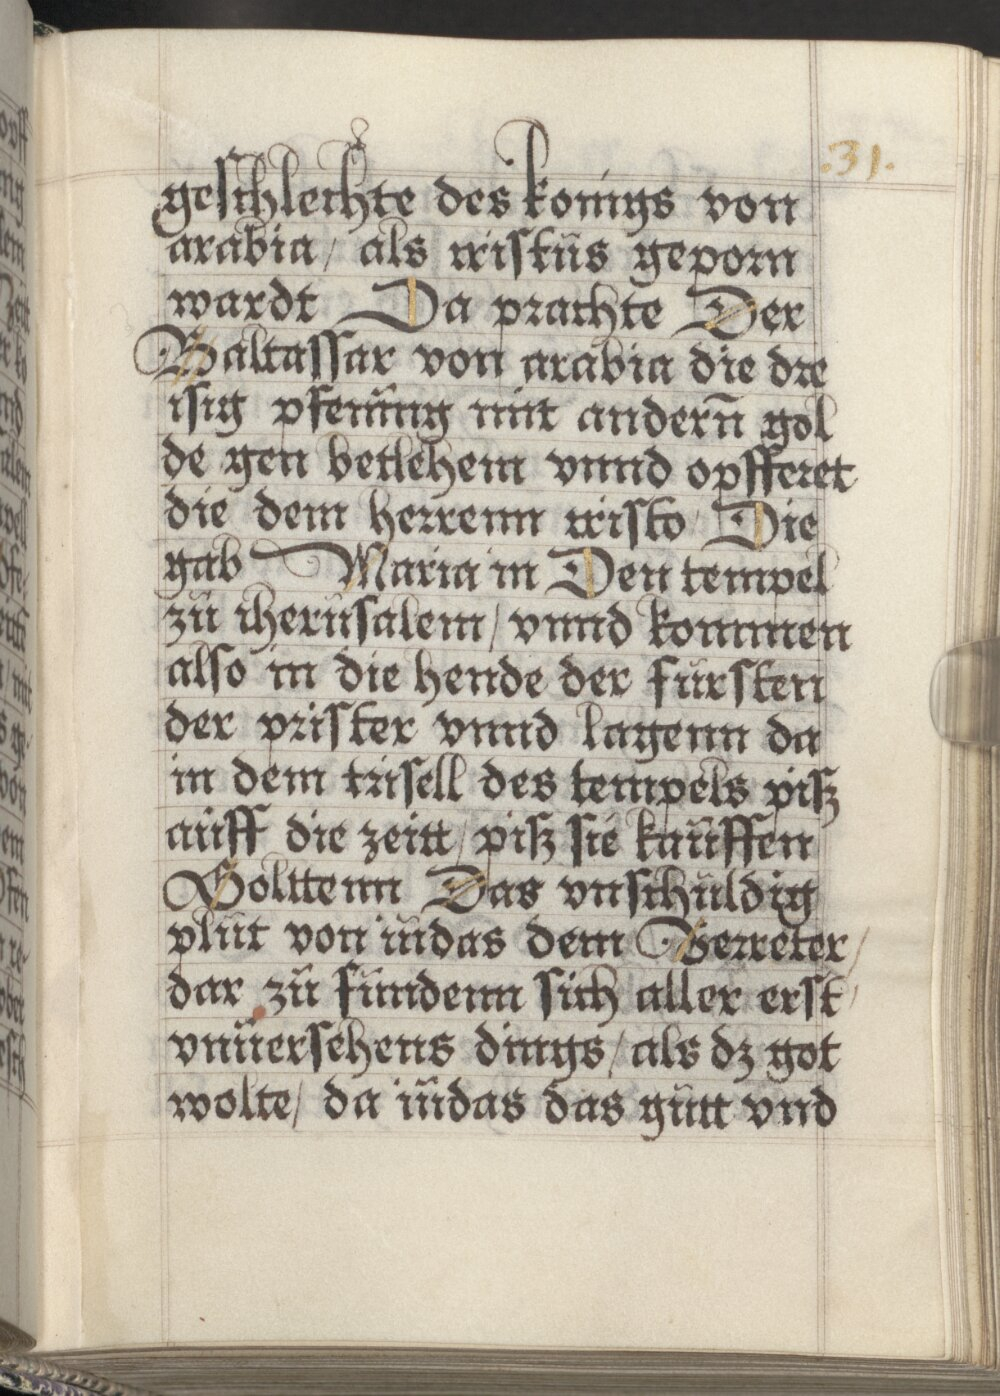 .31.
geschlechte des konigs von
arabia / als cristüs geporn
wardt Da prachte Der
Baltassar von arabia die dre
isig pfening mit andern̄ gol
de gen betlehem vnnd opfferet
die dem herrenn cristo Die
gab Maria in Den tempel
zü iherüsalem / vnnd kommen
also in die hende der fürsten
der prister vnnd lagenn da
in dem trisell des tempels pisz
aüff die zeitt / pisz sie kaüffen
Solttenn Das vnschüldig
plüt von iüdas dem Verreter /
dar zü fündenn sich aller erst /
vnüersehens dings / als dz got
wolte / da iüdas das gütt vnd